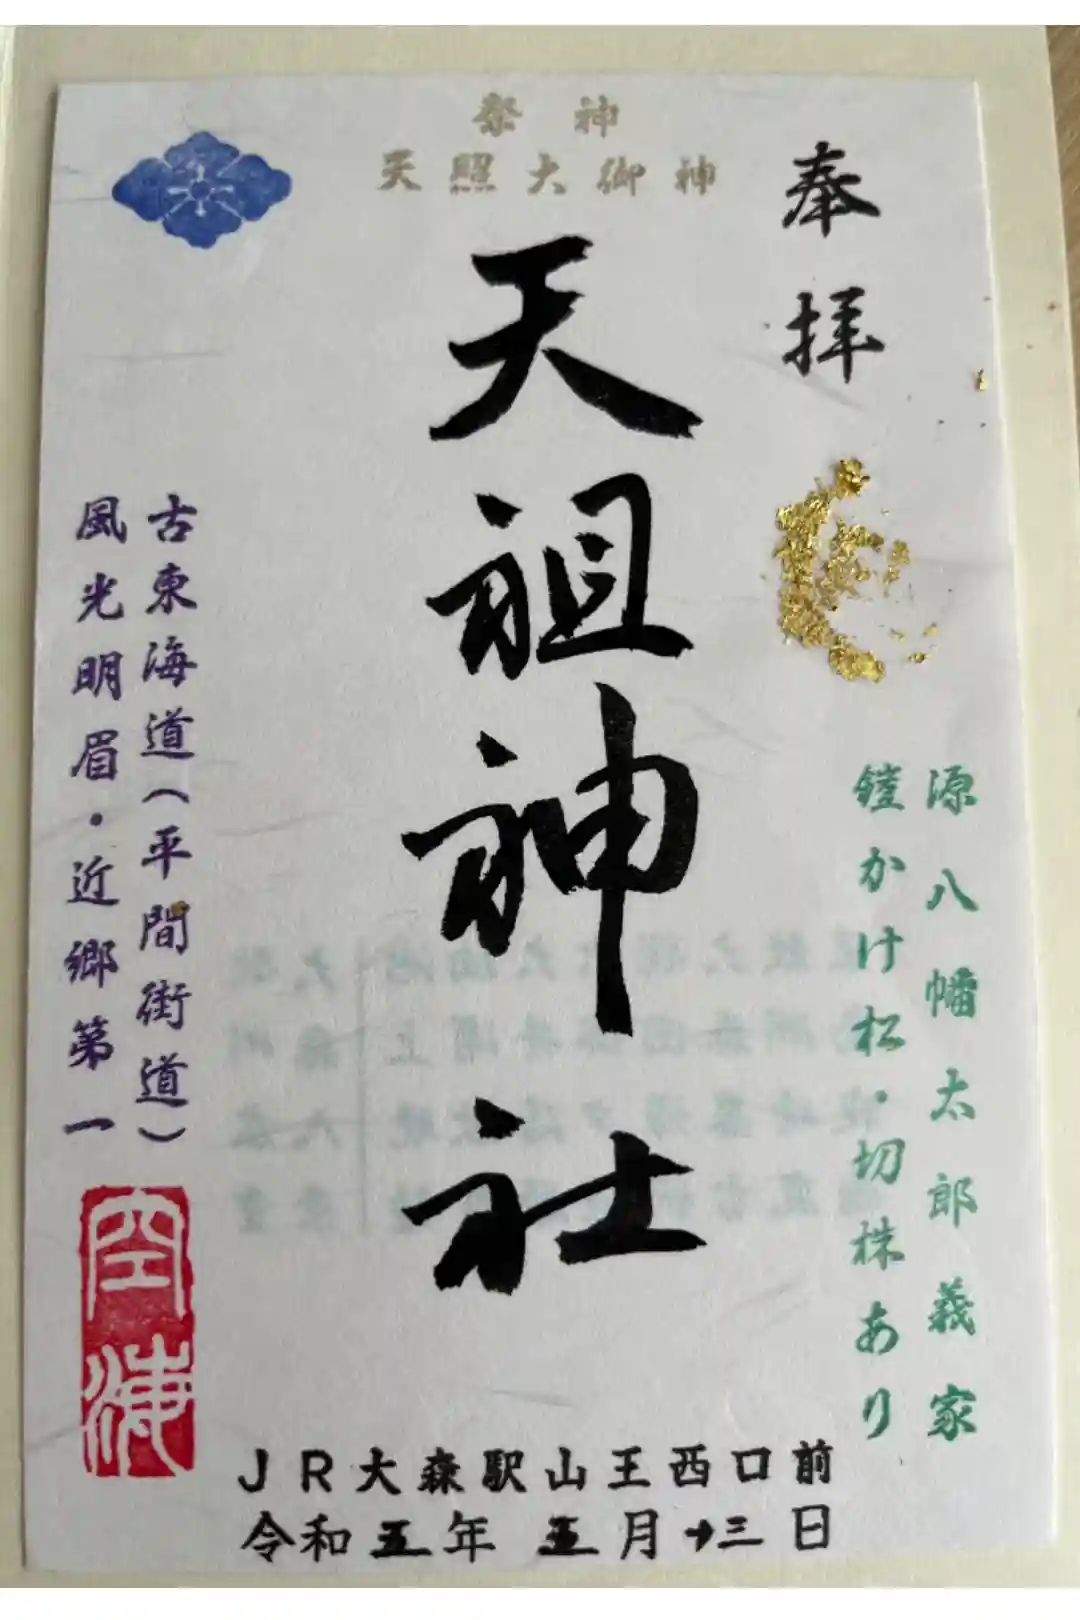 祭神
天照大御神
奉拝
天祖神社
源八幡太郎義家
鎧かけ松・切株あり
古東海道（平間街道）
風光明眉・近郷第一
JR大森駅山王西口前
令和五年 五月十三日